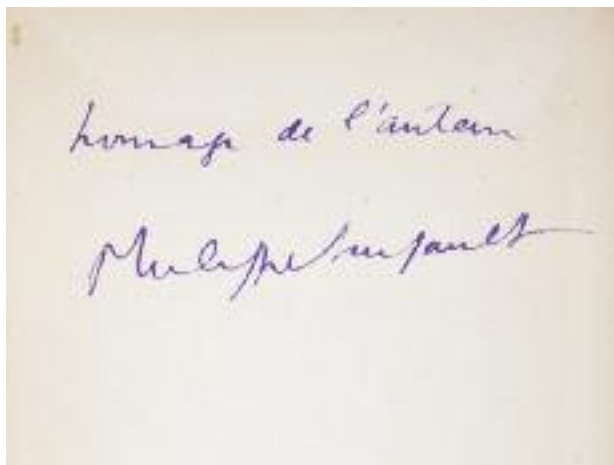 hommage de l'auteur
Philippe Soupault